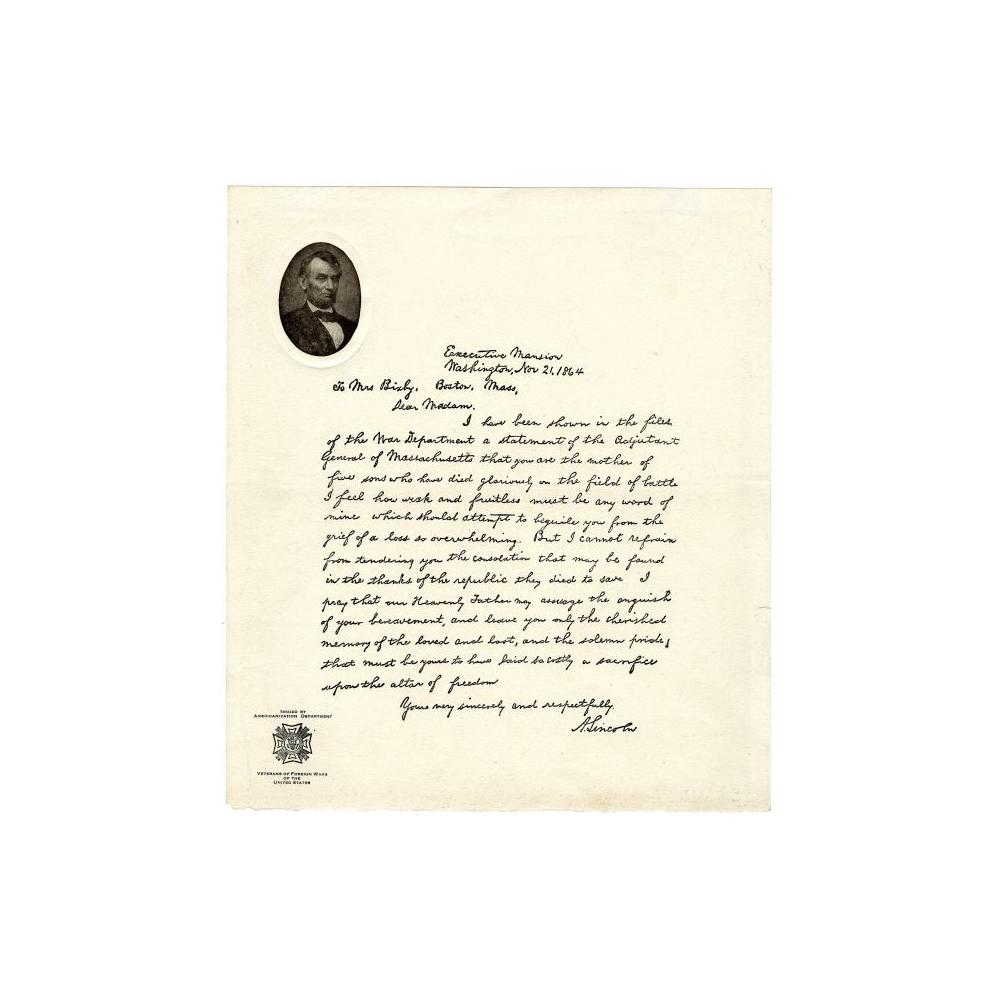 Executive Mansion
Washington, Nov 21, 1864
To Mrs Bixby, Boston, Mass,
Dear Madam.
I have been shown in the files
of the War Department a statement of the Adjutant
General of Massachusetts that you are the mother of
five sons who have died gloriously on the field of battle
I feel how weak and fruitless must be any word of
mine which should attempt to beguile you from the
grief of a loss so overwhelming. But I cannot refrain
from tendering you the consolation that may be found
in the thanks of the republic they died to save I
pray that our Heavenly Father may assuage the anguish
of your bereavement, and leave you only the cherished
memory of the loved and lost, and the solemn pride,
that must be yours to have laid so costly a sacrifice
upon the altar of freedom
Yours very sincerely and respectfully,
A. Lincoln
ISSUED BY
AMERICANIZATION DEPARTMENT
VETERANS OF FOREIGN WARS
OF THE
UNITED STATES